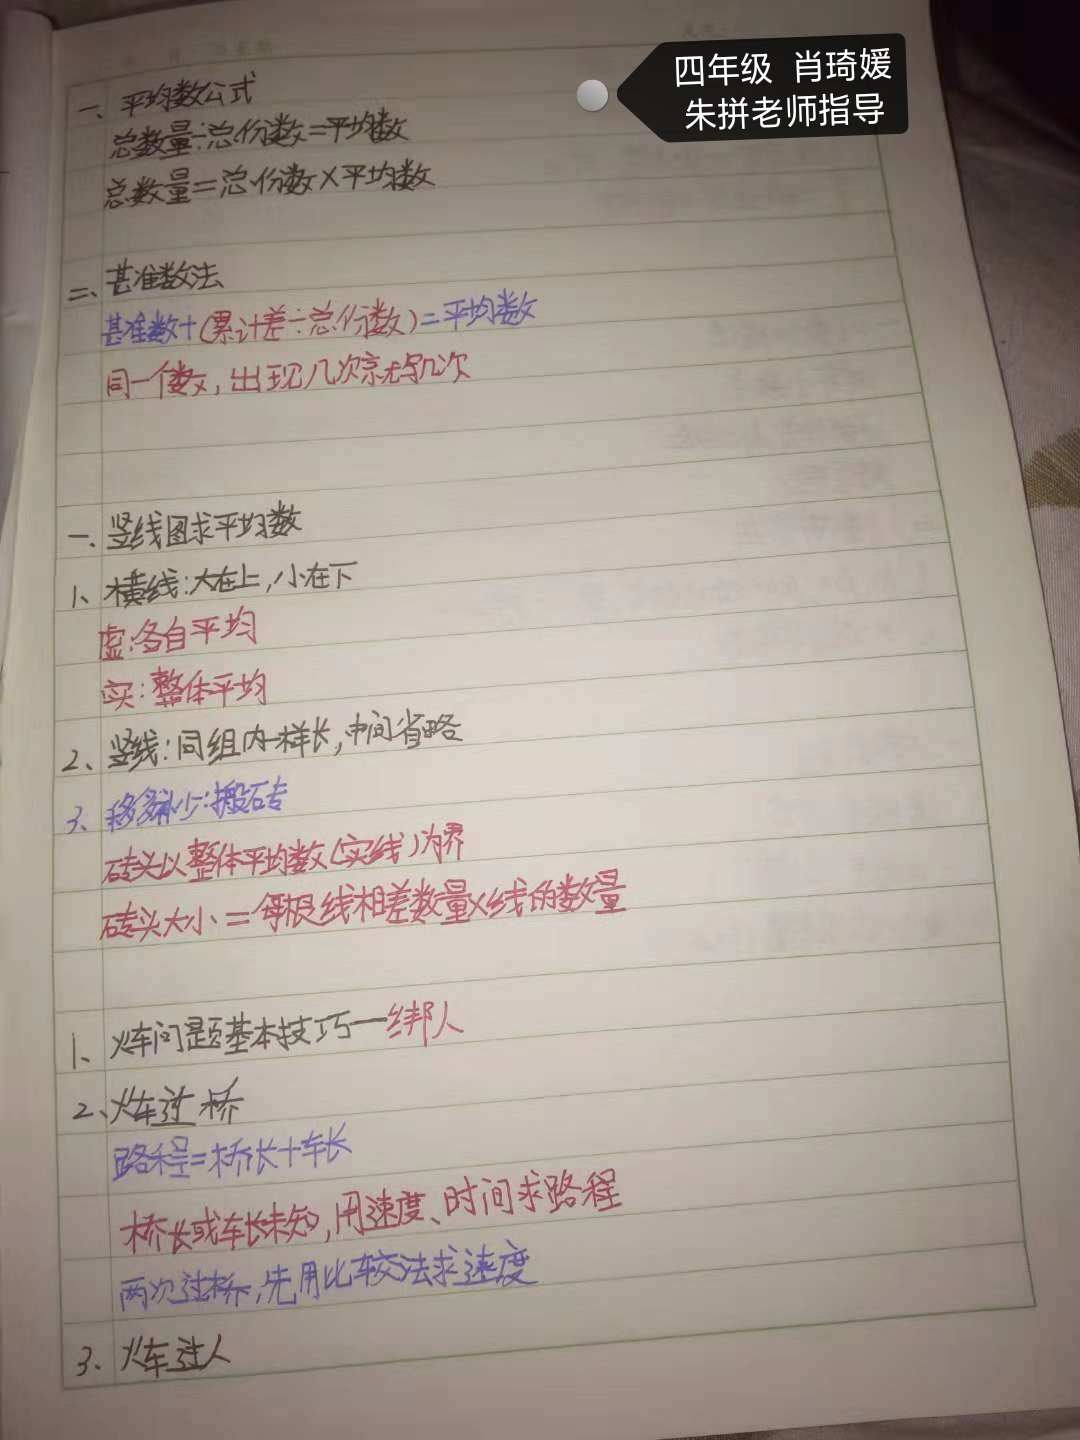 四年级 肖琦媛
朱拼老师指导
一、平均数公式
总数量÷总份数=平均数
总数量=总份数×平均数
二、基准数法
基准数+(累计差÷总份数)=平均数
同一个数,出现几次就写几次
一、竖线图求平均数
1、横线:大在上,小在下
虚:各自平均
实:整体平均
2、竖线:同组内一样长,中间省略
3、移多补少:搬砖
砖头以整体平均数(实线)为界
砖头大小=每根线相差数量×线的数量
1、火车问题基本技巧—绑人
2、火车过桥
路程=桥长+车长
桥长或车长未知,用速度、时间求路程
两次过桥,先用比较法求速度
3、火车过人